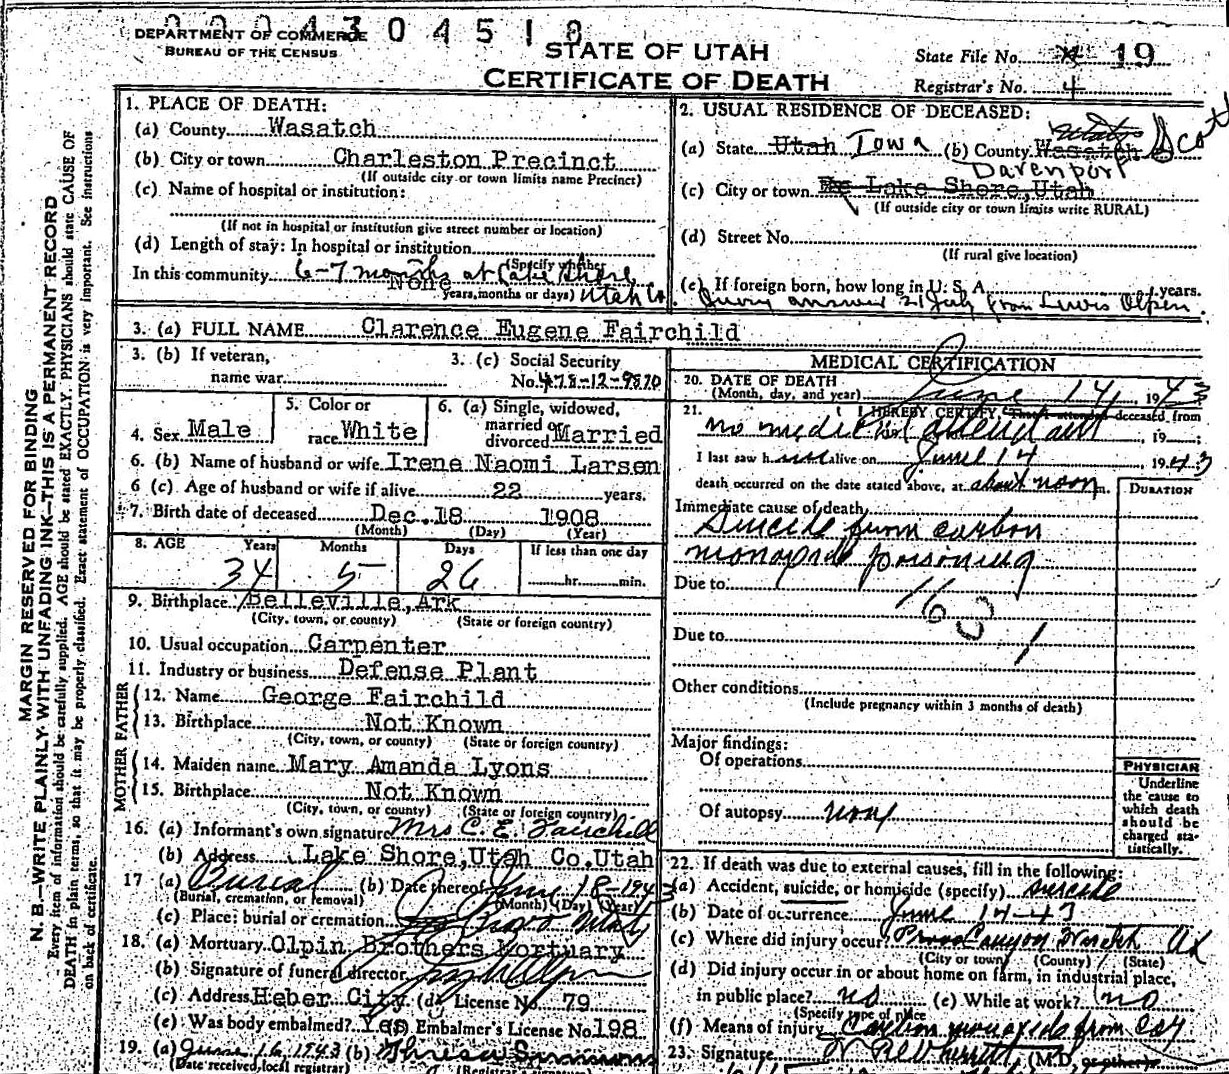 000430451 8
DEPARTMENT OF COMMERCE
BUREAU OF THE CENSUS
STATE OF UTAH
CERTIFICATE OF DEATH
State File No. 19
Registrar's No. 4
MARGIN RESERVED FOR BINDING
N. B.—WRITE PLAINLY WITH UNFADING INK—THIS IS A PERMANENT RECORD
Every item of information should be carefully supplied. AGE should be stated EXACTLY. PHYSICIANS should state CAUSE OF
DEATH in plain terms, so that it may be properly classified. Exact statement of OCCUPATION is very important. See instructions
on back of certificate.
1. PLACE OF DEATH:
(a) County Wasatch
(b) City or town Charleston Precinct
(If outside city or town limits name Precinct)
(c) Name of hospital or institution:
(If not in hospital or institution give street number or location)
(d) Length of stay: In hospital or institution
(Specify whether
In this community 6-7 months at Lake Shore
None
years, months or days) Utah Co.
2. USUAL RESIDENCE OF DECEASED:
(a) State Utah Iowa (b) County Wasatch Scott
Davenport
(c) City or town Lake Shore, Utah
(If outside city or town limits write RURAL)
(d) Street No.
(If rural give location)
(e) If foreign born, how long in U. S. A. years.
Query answer 21 July from Lewis Olpen.
3. (a) FULL NAME Clarence Eugene Fairchild
3. (b) If veteran,
name war
3. (c) Social Security
No. 478-12-9570
4. Sex Male
5. Color or
race White
6. (a) Single, widowed,
married or
divorced Married
6. (b) Name of husband or wife Irene Naomi Larsen
6 (c) Age of husband or wife if alive 22 years.
7. Birth date of deceased Dec. 18 1908
(Month) (Day) (Year)
8. AGE Years Months Days If less than one day
34 5 26 hr. min.
9. Birthplace Belleville, Ark
(City, town, or county) (State or foreign country)
10. Usual occupation Carpenter
11. Industry or business Defense Plant
FATHER
12. Name George Fairchild
13. Birthplace Not Known
(City, town, or county) (State or foreign country)
MOTHER
14. Maiden name Mary Amanda Lyons
15. Birthplace Not Known
(City, town, or county) (State or foreign country)
16. (a) Informant's own signature Mrs C. E. Fairchild
(b) Address Lake Shore, Utah Co. Utah
17 (a) Burial (b) Date thereof June 18-1943
(Burial, cremation, or removal) (Month) (Day) (Year)
(c) Place: burial or cremation Provo Utah
18. (a) Mortuary Olpin Brothers Mortuary
(b) Signature of funeral director
(c) Address Heber City (d) License No 79
(e) Was body embalmed? Yes Embalmer's License No 198
19. (a) June 16, 1943 (b) Simmons
(Date received, local registrar) (Registrar's signature)
MEDICAL CERTIFICATION
20. DATE OF DEATH
(Month, day, and year) June 14, 1943
21. I HEREBY CERTIFY, That I attended deceased from
no medical attendant, 19
I last saw h alive on June 14, 1943
death occurred on the date stated above, at about noon m.
DURATION
Immediate cause of death
Suicide from carbon
monoxide poisoning
Due to
163
Due to
1
Other conditions
(Include pregnancy within 3 months of death)
Major findings:
Of operations
Of autopsy none
PHYSICIAN
Underline
the cause to
which death
should be
charged sta-
tistically.
22. If death was due to external causes, fill in the following:
(a) Accident, suicide, or homicide (specify) suicide
(b) Date of occurrence June 14-43
(c) Where did injury occur? Provo Canyon Wasatch Ut
(City or town) (County) (State)
(d) Did injury occur in or about home on farm, in industrial place,
in public place? no (e) While at work? no
(Specify type of place
(f) Means of injury Carbon monoxide from car
23. Signature (M.D. or other)